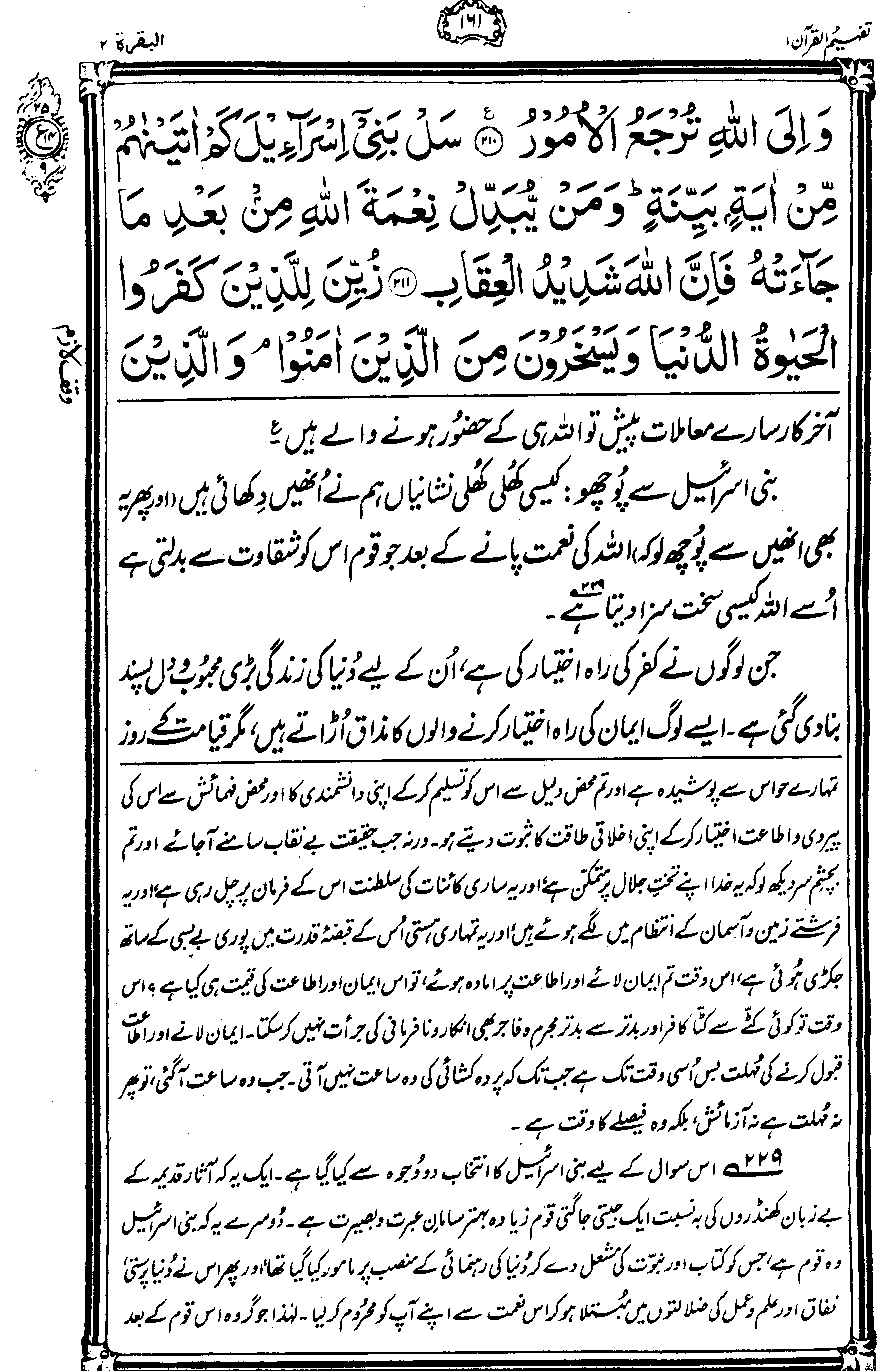 تفہیم القرآن ۱
۱۶۱
البقرۃ ۲
وَ اِلَى اللّٰهِ تُرْجَعُ الْاُمُوْرُ ﴿۲۱۰﴾ ع سَلْ بَنِیْٓ اِسْرَآءِیْلَ كَمْ اٰتَیْنٰهُمْ
مِّنْ اٰیَةٍۭ بَیِّنَةٍ ؕ وَ مَنْ یُّبَدِّلْ نِعْمَةَ اللّٰهِ مِنْۢ بَعْدِ مَا
جَآءَتْهُ فَاِنَّ اللّٰهَ شَدِیْدُ الْعِقَابِ ﴿۲۱۱﴾ زُیِّنَ لِلَّذِیْنَ كَفَرُوا
الْحَیٰوةُ الدُّنْیَا وَ یَسْخَرُوْنَ مِنَ الَّذِیْنَ اٰمَنُوْا ۘ وَ الَّذِیْنَ
وقف لازم
آخر کار سارے معاملات پیش تو اللہ ہی کے حضُور ہونے والے ہیں ؏
بنی اسرائیل سے پُوچھو: کیسی کھُلی کھُلی نشانیاں ہم نے اُنھیں دِکھائی ہیں (اور پھر یہ
بھی انھیں سے پُوچھ لو کہ) اللہ کی نعمت پانے کے بعد جو قوم اس کو شقاوت سے بدلتی ہے
اُسے اللہ کیسی سخت سزا دیتا ہے۲۲۹۔
جن لوگوں نے کفر کی راہ اختیار کی ہے، اُن کے لیے دُنیا کی زندگی بڑی محبُوب و دل پسند
بنا دی گئی ہے۔ ایسے لوگ ایمان کی راہ اختیار کرنے والوں کا مذاق اُڑاتے ہیں، مگر قیامت کے روز
تمہارے حواس سے پوشیدہ ہے اور تم محض دلیل سے اس کو تسلیم کر کے اپنی دانشمندی کا اور محض فہمائش سے اس کی
پیروی و اطاعت اختیار کر کے اپنی اخلاقی طاقت کا ثبوت دیتے ہو۔ ورنہ جب حقیقت بے نقاب سامنے آجائے اور تم
بچشمِ سر دیکھ لو کہ یہ خدا اپنے تختِ جلال پر متمکن ہے، اور یہ ساری کائنات کی سلطنت اس کے فرمان پر چل رہی ہے، اور یہ
فرشتے زمین و آسمان کے انتظام میں لگے ہوئے ہیں، اور یہ تمہاری ہستی اُس کے قبضۂ قدرت میں پوری بے بسی کے ساتھ
جکڑی ہُوئی ہے، اس وقت تم ایمان لائے اور اطاعت پر آمادہ ہوئے، تو اس ایمان اور اطاعت کی قیمت ہی کیا ہے؟ اس
وقت تو کوئی کٹّے سے کٹّا کافر اور بدتر سے بدتر مجرم و فاجر بھی انکار و نافرمانی کی جرأت نہیں کر سکتا۔ ایمان لانے اور اطاعت
قبول کرنے کی مُہلت بس اُسی وقت تک ہے جب تک کہ پردہ کشائی کی وہ ساعت نہیں آتی۔ جب وہ ساعت آگئی، تو پھر
نہ مُہلت ہے نہ آزمائش، بلکہ وہ فیصلے کا وقت ہے۔
۲۲۹ اس سوال کے لیے بنی اسرائیل کا انتخاب دو وُجوہ سے کیا گیا ہے۔ ایک یہ کہ آثارِ قدیمہ کے
بے زبان کھنڈروں کی بہ نسبت ایک جیتی جاگتی قوم زیادہ بہتر سامانِ عبرت و بصیرت ہے۔ دُوسرے یہ کہ بنی اسرائیل
وہ قوم ہے، جس کو کتاب اور نبوّت کی مشعل دے کر دُنیا کی رہنمائی کے منصب پر مامور کیا گیا تھا، اور پھر اس نے دُنیا پرستی،
نفاق اور علم و عمل کی ضلالتوں میں مُبتلا ہو کر اس نعمت سے اپنے آپ کو محرُوم کر لیا۔ لہٰذا جو گروہ اس قوم کے بعد